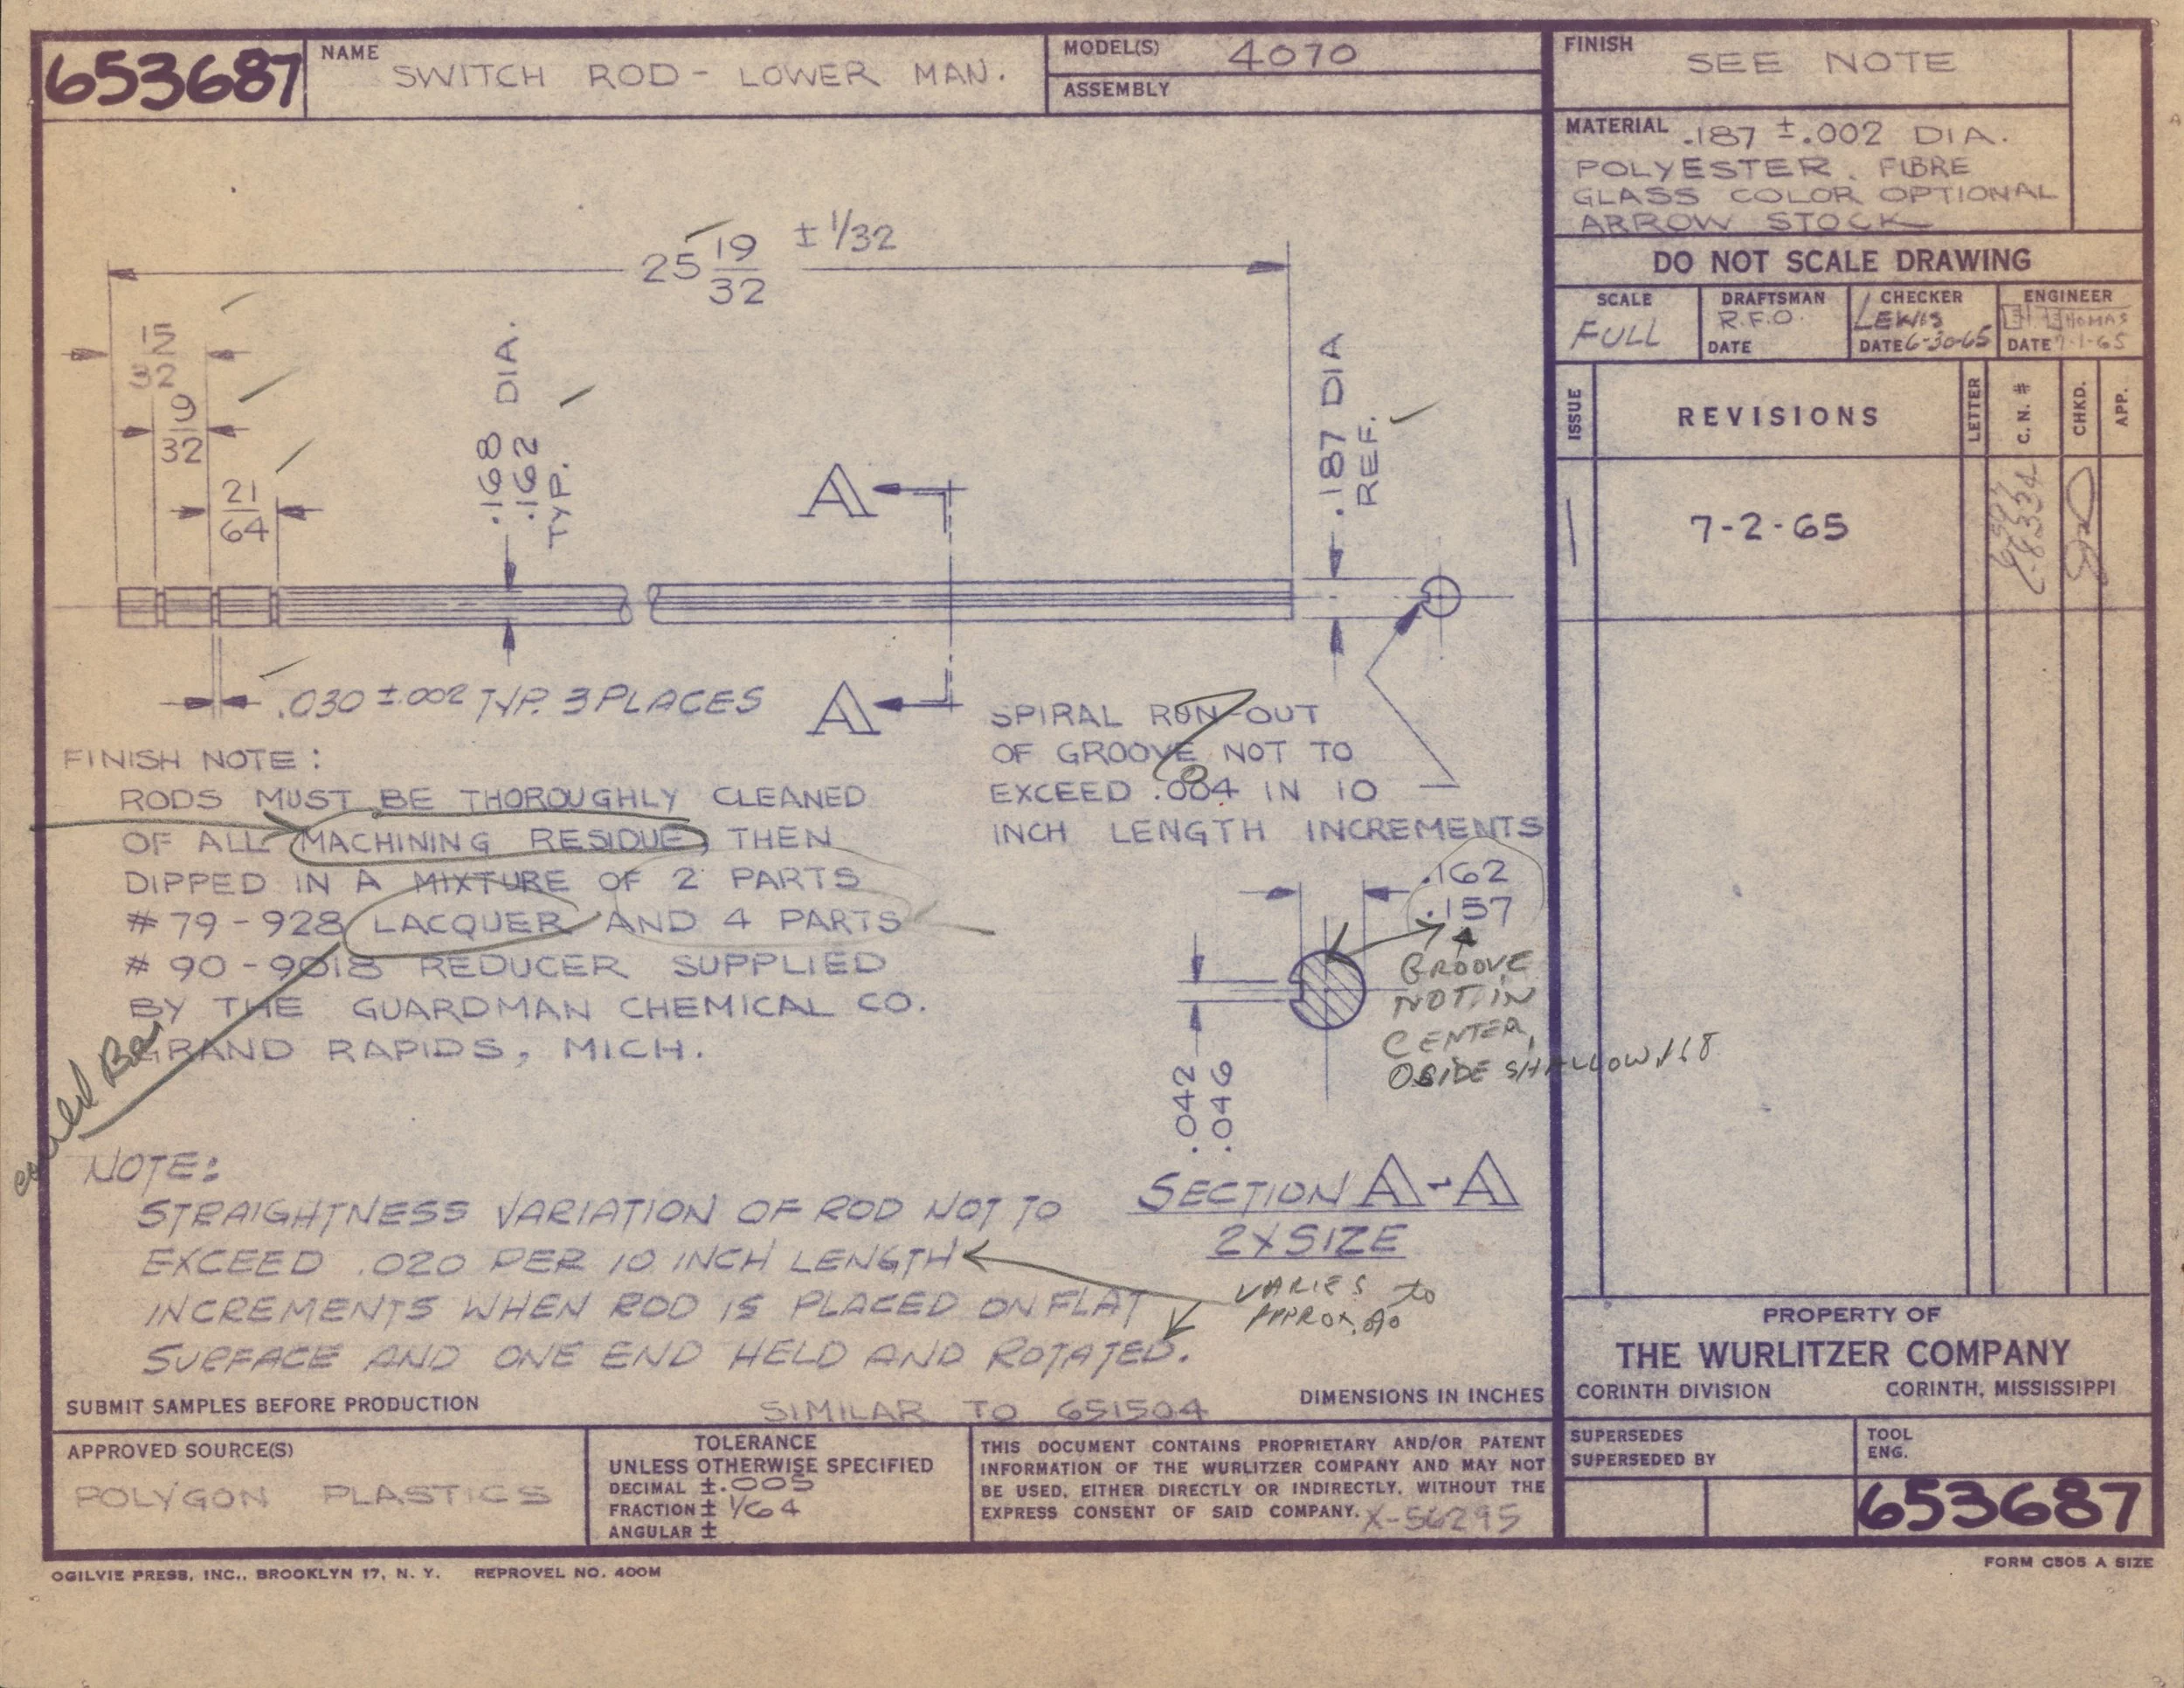 653687
NAME
SWITCH ROD - LOWER MAN.
MODEL(S) 4070
ASSEMBLY
FINISH
SEE NOTE
MATERIAL .187 ±.002 DIA.
POLYESTER. FIBRE
GLASS COLOR OPTIONAL
ARROW STOCK
DO NOT SCALE DRAWING
SCALE
FULL
DRAFTSMAN
R.F.O.
DATE
CHECKER
LEWIS
DATE 6-30-65
ENGINEER
THOMAS
DATE 7-1-65
ISSUE
REVISIONS
LETTER
C. N. #
CHKD.
APP.
7-2-65
25 19/32 ± 1/32
15/32
9/32
21/64
.168 DIA.
.162
TYP.
A
.187 DIA
REF.
.030 ±.002 TYP. 3 PLACES
A
SPIRAL RUN-OUT
OF GROOVE NOT TO
EXCEED .004 IN 10
INCH LENGTH INCREMENTS
8
FINISH NOTE:
RODS MUST BE THOROUGHLY CLEANED
OF ALL MACHINING RESIDUE, THEN
DIPPED IN A MIXTURE OF 2 PARTS
# 79-928 LACQUER AND 4 PARTS
# 90-9018 REDUCER SUPPLIED
BY THE GUARDMAN CHEMICAL CO.
GRAND RAPIDS, MICH.
.162
.157
GROOVE
NOT IN
CENTER,
SIDE SHALLOW .168
.042
.046
SECTION A-A
2X SIZE
VARIES to
APPROX.
NOTE:
STRAIGHTNESS VARIATION OF ROD NOT TO
EXCEED .020 PER 10 INCH LENGTH
INCREMENTS WHEN ROD IS PLACED ON FLAT
SURFACE AND ONE END HELD AND ROTATED.
SUBMIT SAMPLES BEFORE PRODUCTION
SIMILAR TO 651504
DIMENSIONS IN INCHES
PROPERTY OF
THE WURLITZER COMPANY
CORINTH DIVISION CORINTH, MISSISSIPPI
APPROVED SOURCE(S)
POLYGON PLASTICS
TOLERANCE
UNLESS OTHERWISE SPECIFIED
DECIMAL ±.005
FRACTION ± 1/64
ANGULAR ±
THIS DOCUMENT CONTAINS PROPRIETARY AND/OR PATENT
INFORMATION OF THE WURLITZER COMPANY AND MAY NOT
BE USED, EITHER DIRECTLY OR INDIRECTLY, WITHOUT THE
EXPRESS CONSENT OF SAID COMPANY. X-56295
SUPERSEDES
SUPERSEDED BY
TOOL
ENG.
653687
OGILVIE PRESS, INC., BROOKLYN 17, N. Y. REPROVEL NO. 400M
FORM C505 A SIZE